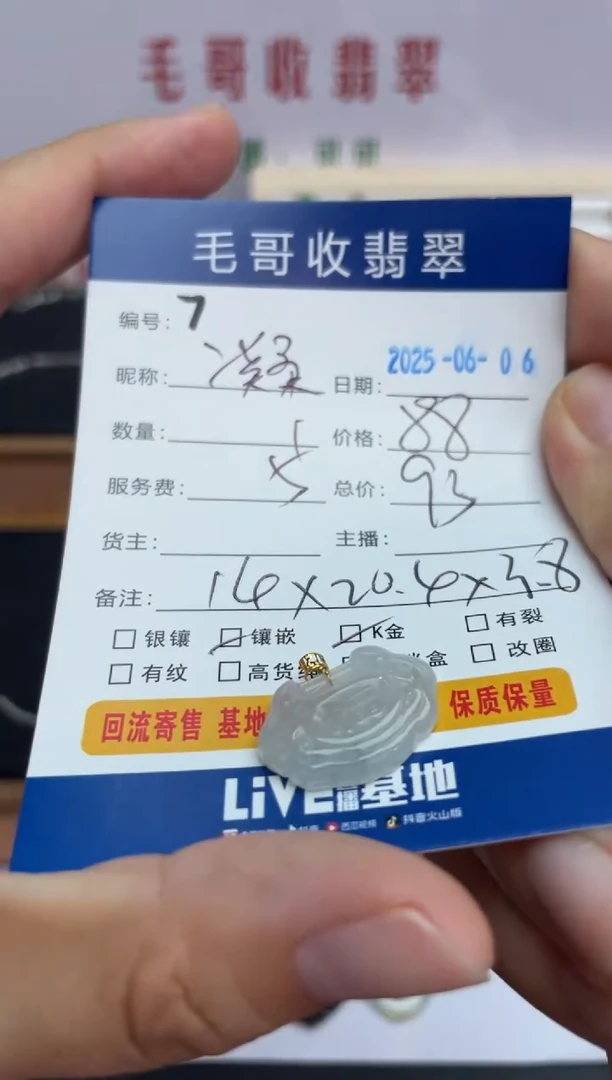 毛哥收翡翠
毛哥收翡翠
编号: 7
昵称: 日期: 2025-06-06
数量: 1 价格: 88
服务费: 5 总价: 93
货主: 主播:
备注: 14×20.4×3.8
银镶 镶嵌 K金 有裂
有纹 高货 盒 改圈
回流寄售 基地 保质保量
LiVE 基地
西瓜视频 抖音火山版